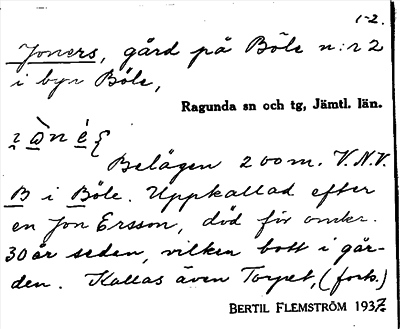 1-2.
Joners, gård på Böle n:r 2
i byn Böle,
Ragunda sn och tg, Jämtl. län.
Belägen 200 m. V.N.V.
B i Böle. Uppkallad efter
en Jon Ersson, död för omkr.
30 år seden, vilken bott i går-
den. Kallas även Torpet, (forts.)
BERTIL FLEMSTRÖM 1937.